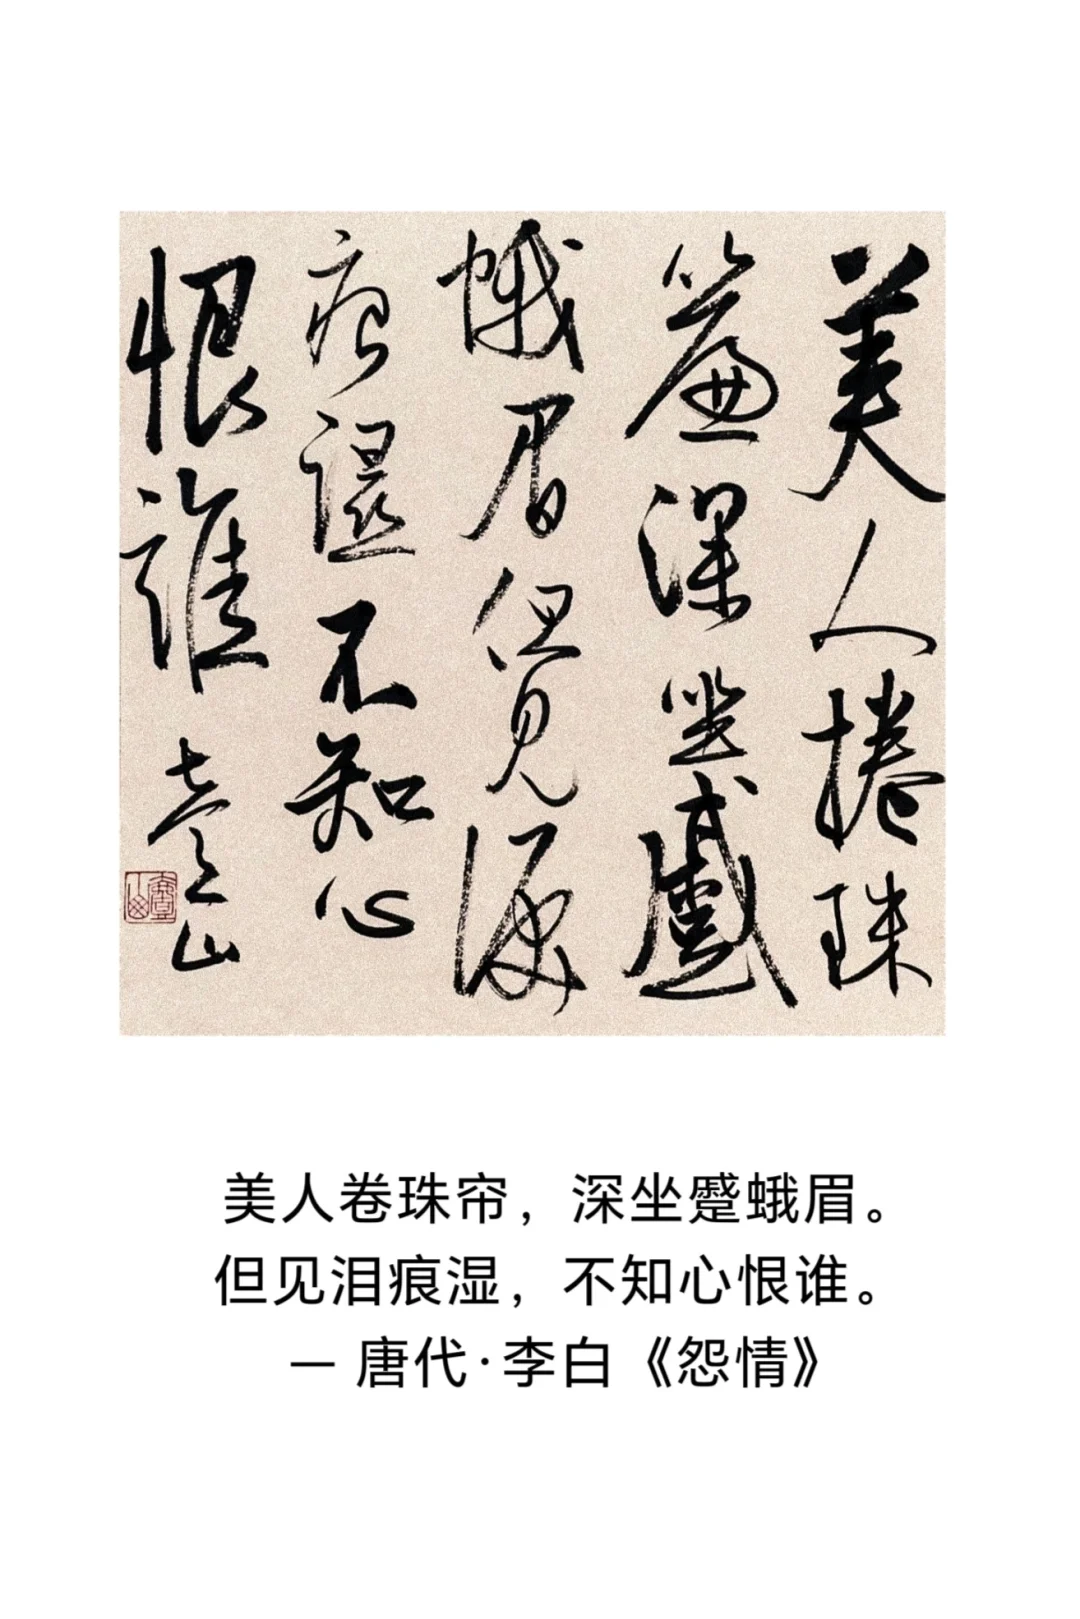 美人捲珠
簾深坐蹙
蛾眉但見淚
痕濕不知心
恨誰
美人卷珠帘，深坐蹙蛾眉。
但见泪痕湿，不知心恨谁。
— 唐代·李白《怨情》